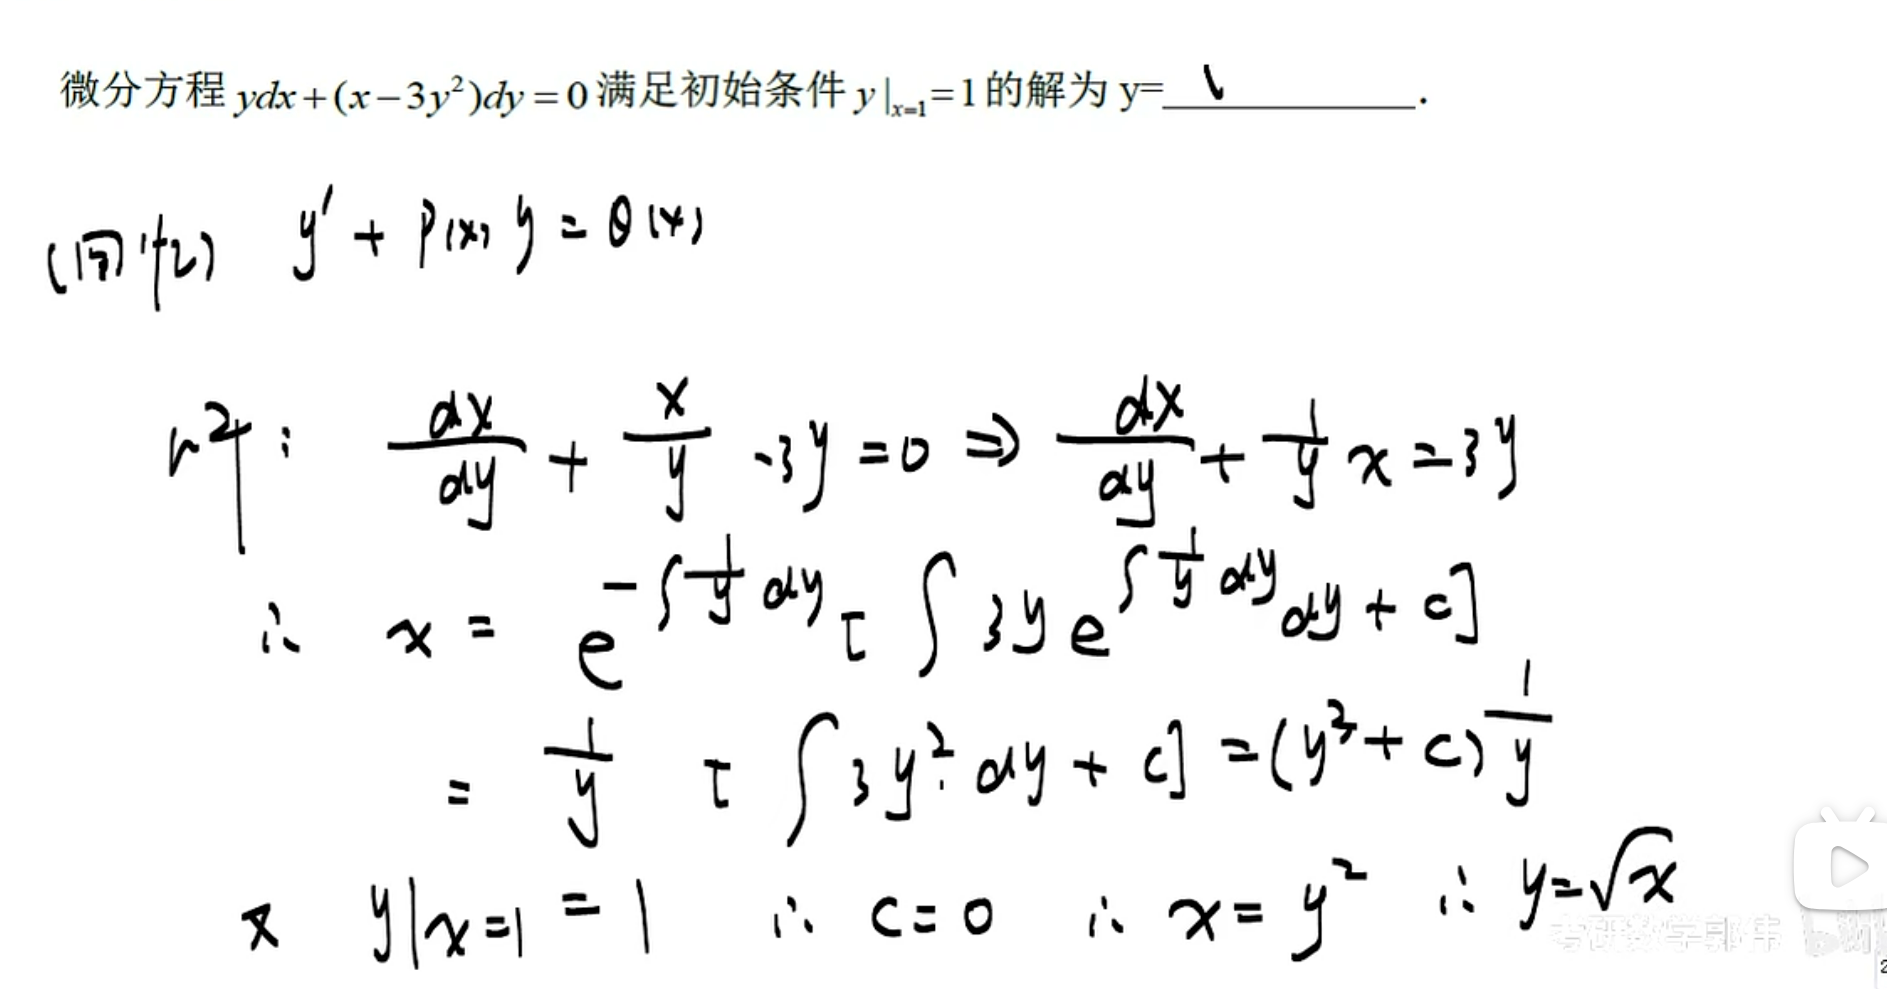 微分方程 ydx+(x−3y²)dy=0 满足初始条件 y|x=1=1 的解为 y=__________.
y′ + P(x) y = Q(x)
dx/dy + x/y -3y = 0 ⇒ dx/dy + 1/y x = 3y
∴ x = e^(-∫1/y dy) [∫3y e^(∫1/y dy) dy + c]
= 1/y [∫3y² dy + c] = (y³ + c) 1/y
y|x=1 = 1 ∴ c=0 ∴ x=y² ∴ y=√x
考研数学郭伟
2